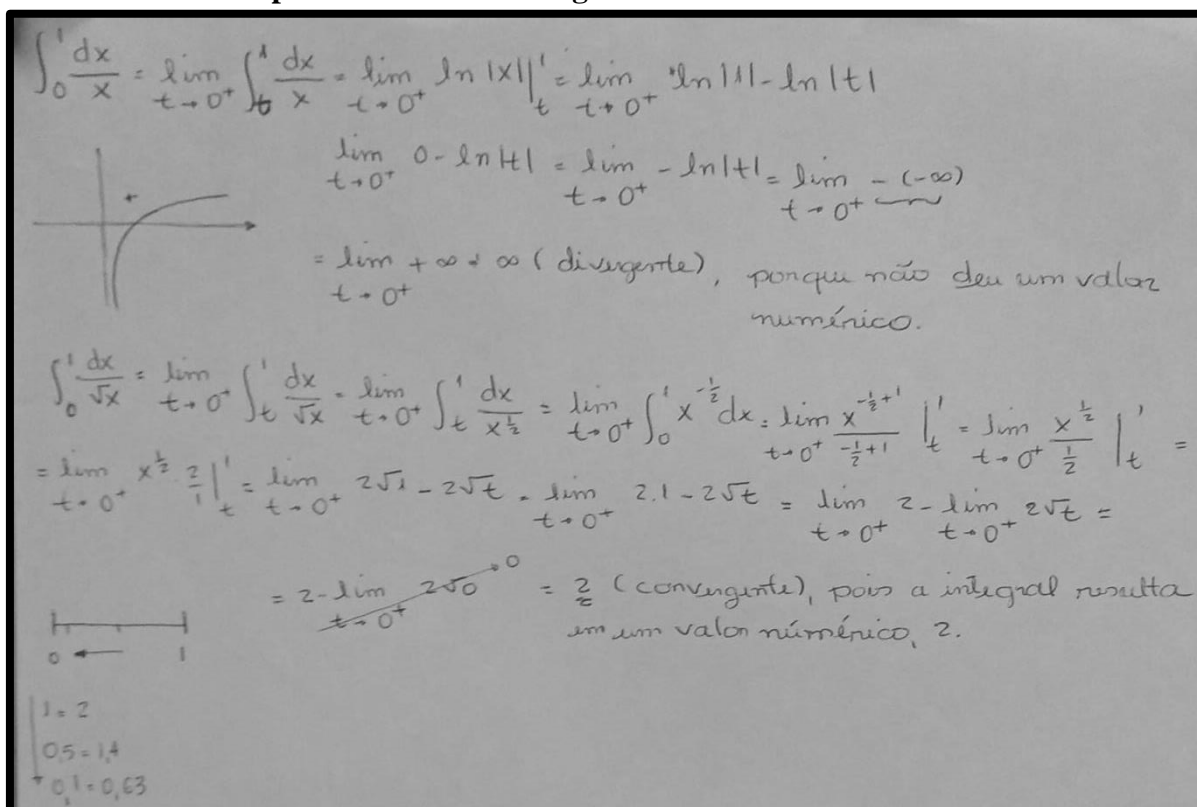 ∫₀¹ dx/x = lim t→0⁺ ∫ₜ¹ dx/x = lim t→0⁺ ln |x| |ₜ¹ = lim t→0⁺ ln |1| - ln |t|
lim t→0⁺ 0 - ln |t| = lim t→0⁺ - ln |t| = lim t→0⁺ - (-∞)
= lim t→0⁺ + ∞ = ∞ (divergente), porque não deu um valor
numérico.
∫₀¹ dx/√x = lim t→0⁺ ∫ₜ¹ dx/√x = lim t→0⁺ ∫ₜ¹ dx/x^(1/2) = lim t→0⁺ ∫₀¹ x^(-1/2) dx = lim t→0⁺ x^(-1/2+1)/(-1/2+1) |ₜ¹ = lim t→0⁺ x^(1/2)/(1/2) |ₜ¹ =
= lim t→0⁺ x^(1/2) · 2/1 |ₜ¹ = lim t→0⁺ 2√1 - 2√t = lim t→0⁺ 2.1 - 2√t = lim t→0⁺ 2 - lim t→0⁺ 2√t =
= 2 - lim t→0⁺ 2√0 → 0 = 2 (convergente), pois a integral resulta
em um valor númérico, 2.
0 ← 1
1 = 2
0,5 = 1,4
0,1 = 0,63